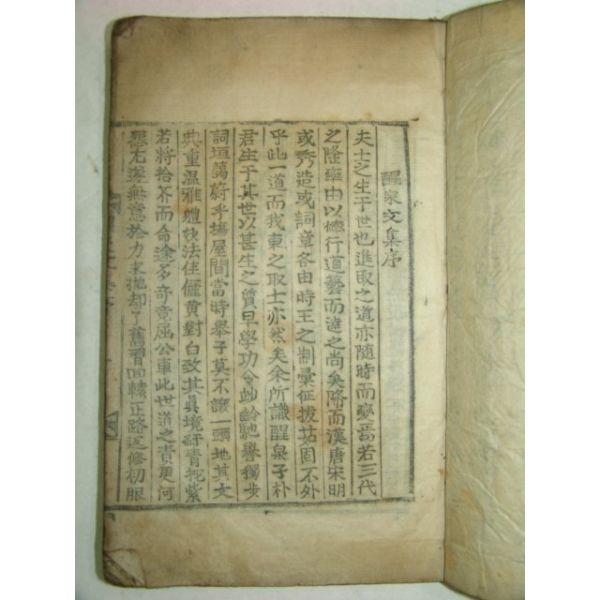 醒泉文集序
夫士之生于世也進取之道亦隨時而變焉若三代
之隆率由以德行道藝而達之尚矣降而漢唐宋明
或秀造或詞章各由時王之制彙征拔茹固不外
乎此一道而我東之取士亦然矣余所識醒泉子朴
君生于其世以甚生之質早學功令妙齡馳譽獨步
詞垣蕩蔚乎場屋間當時擧子莫不讓一頭地其文
典重溫雅體裁法佳儷黃對白改其眞境緋靑批紫
若將拾芥而命途多奇竟屈公車此世道之責更何
無意於力求抛却了舊習回轅正路返修初服